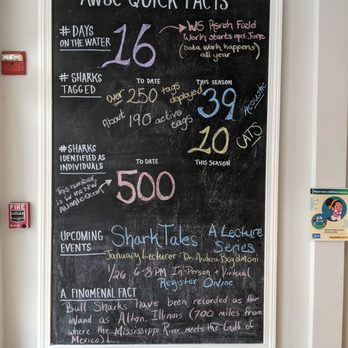 AWSC QUICK FACTS
# DAYS ON THE WATER
16
WS Research Field Work starts end June
(Data work happens all year)
# SHARKS TAGGED
TO DATE
over 250 tags deployed
About 190 active tags
THIS SEASON
39
Acoustic
10
CATS
THIS SEASON
# SHARKS IDENTIFIED AS INDIVIDUALS
This number is for the NW Atlantic Ocean
TO DATE
500
UPCOMING EVENTS
Shark Tales A Lecture Series
January Lecturer: Dr.
1/26 6-8 PM In-Person + Virtual
Register Online
A FINOMENAL FACT
Bull Sharks have been recorded as far
inland as Alton, Illinois (700 miles from
where the Mississippi River meets the Gulf of
Mexico)!
FIRE